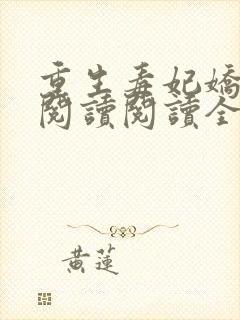 重生毒妃嬌
閱讀閱讀全
黃蓮